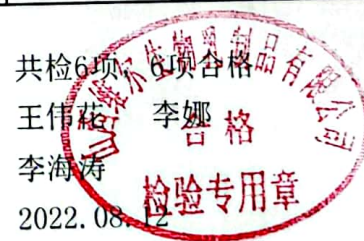 共检6项，6项合格
王伟花 李娜
李海涛
2022.08.12
山东维尔生物乳制品有限公司
合格
检验专用章